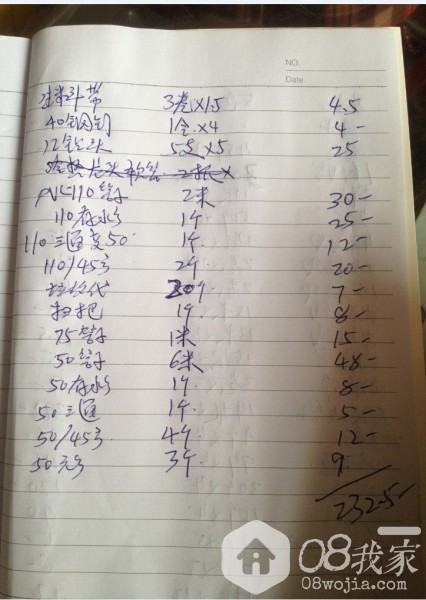 NO.
Date.
生料带 3卷×1.5 4.5
40钢钉 1盒×4 4-
12钻头 5支×5 25
PVC110管子 2米 30-
110存水弯 1个 25-
110三通变50 1个 12-
110/45弯 2个 20-
垃圾代 20个 7-
扫把 1个 8-
75管子 1米 15-
50管子 6米 48-
50存水弯 1个 8-
50三通 1个 5-
50/45弯 4个 12-
50弯 3个 9
232.5
08我家
08wojia.com